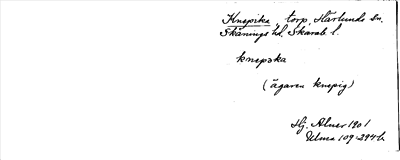 Knepika, torp, Härlunda sn.
Skånings hd. Skarab. l.
knepəka
(ägaren knepig)
Hj. Alner 1901
Ulma 109:294 b.